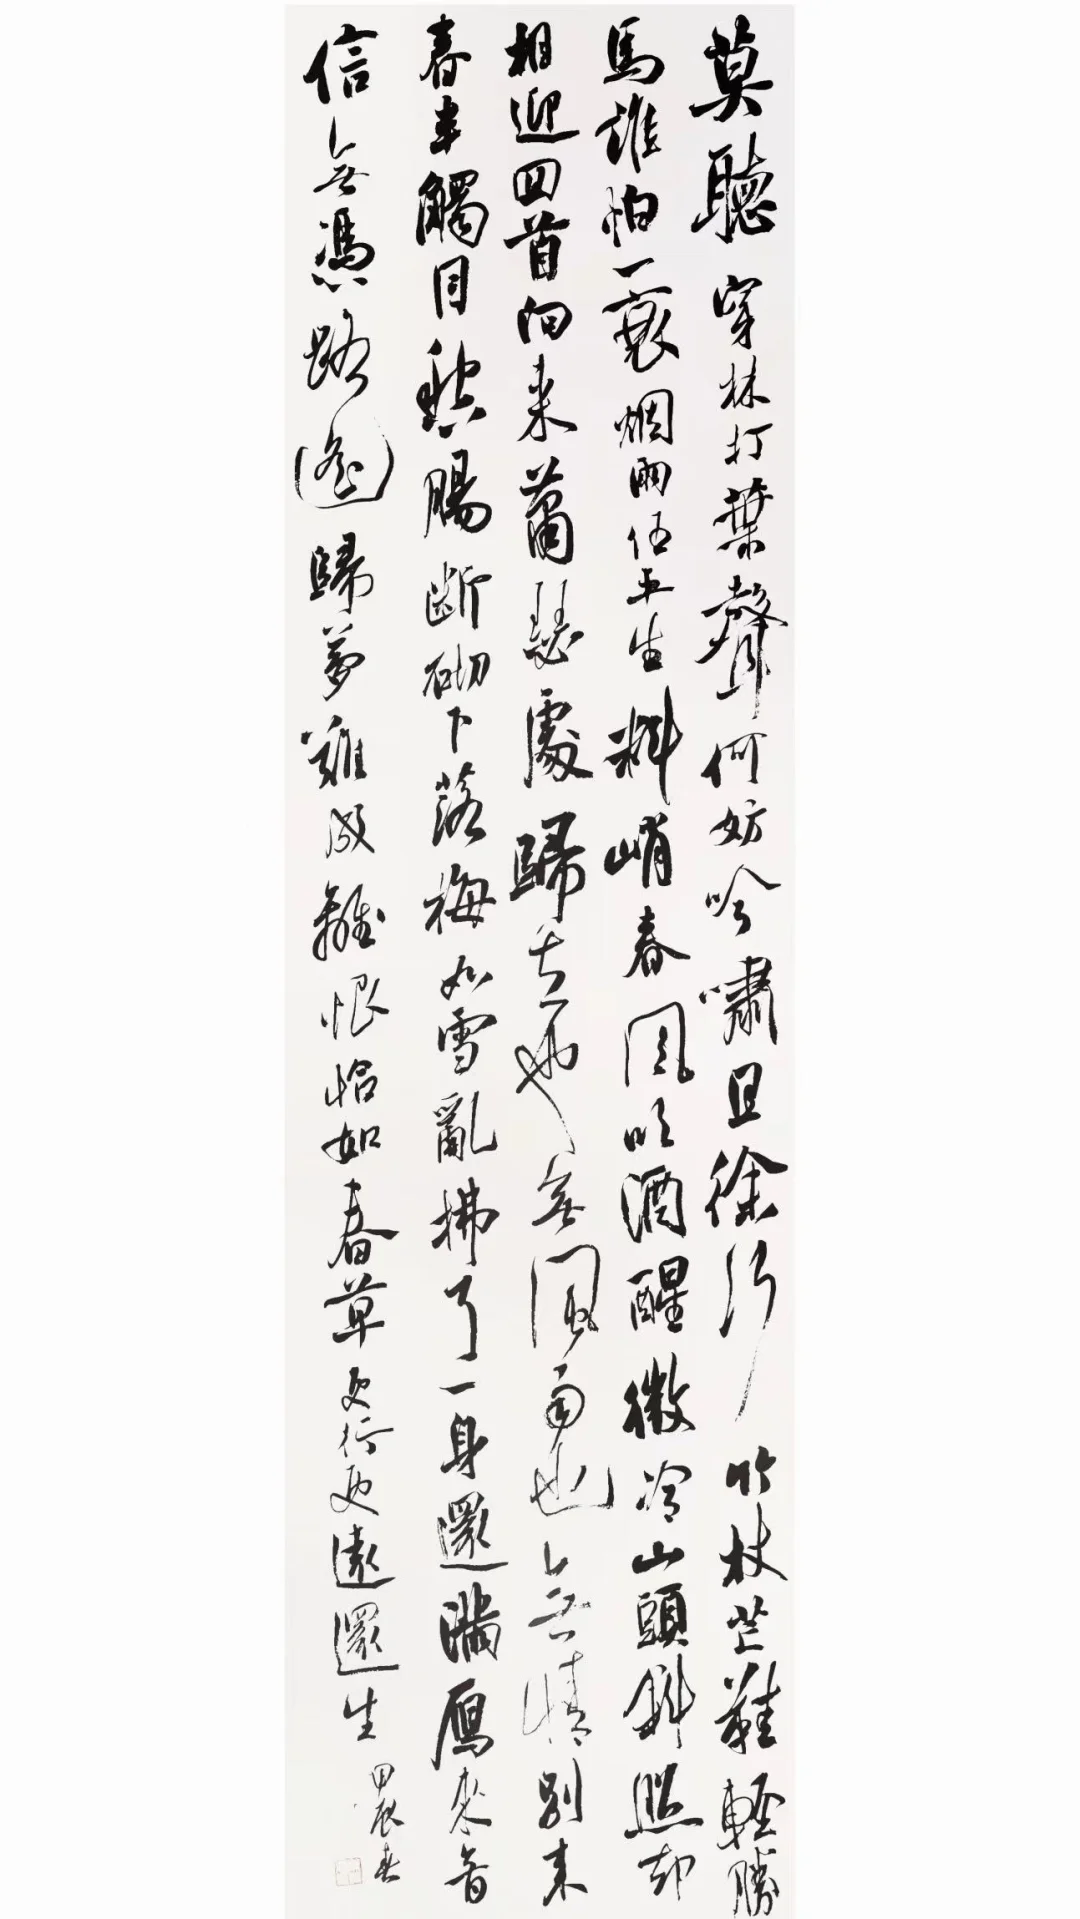 莫聽穿林打葉聲何妨吟嘯且徐行竹杖芒鞋輕勝
馬誰怕一蓑烟雨任平生料峭春風吹酒醒微冷山頭斜照却
相迎回首向来蕭瑟處歸去也無風雨也無情別来
春半觸目愁腸断砌下落梅如雪亂拂了一身還滿雁来音
信無憑路遥歸夢難成離恨恰如春草更行更遠還生
甲辰春